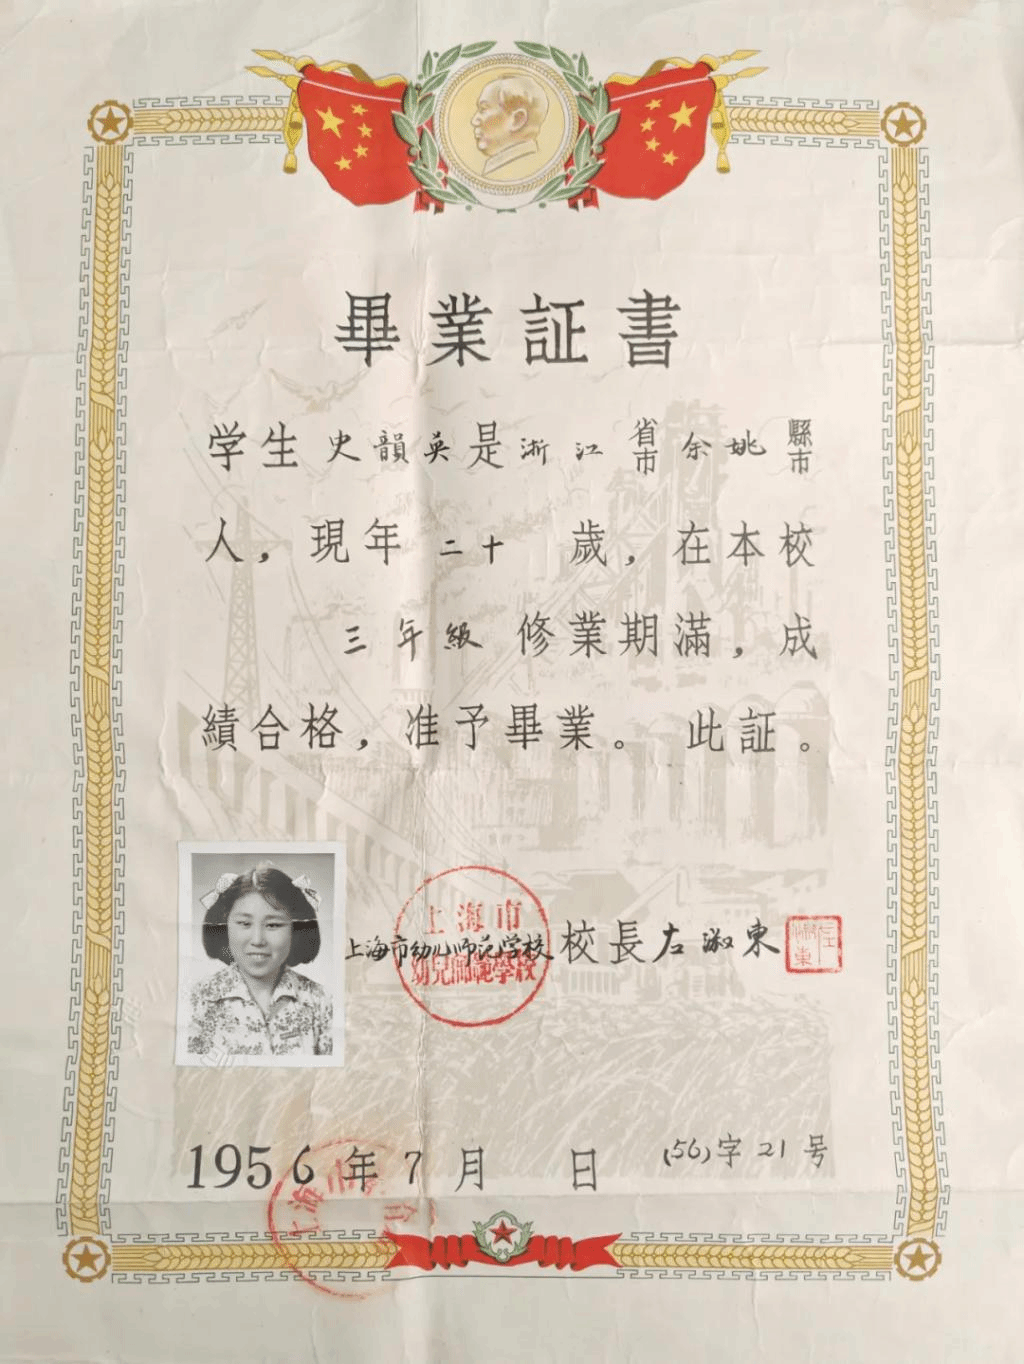 畢業証書
学生史韻英是浙江省市余姚縣市
人，現年二十歲，在本校
三年級修業期滿，成
績合格，准予畢業。此証。
上海市
上海市幼儿师范学校校長左淑東
幼兒師範學校
左淑東
1956年7月 日
(56)字21号
上海市